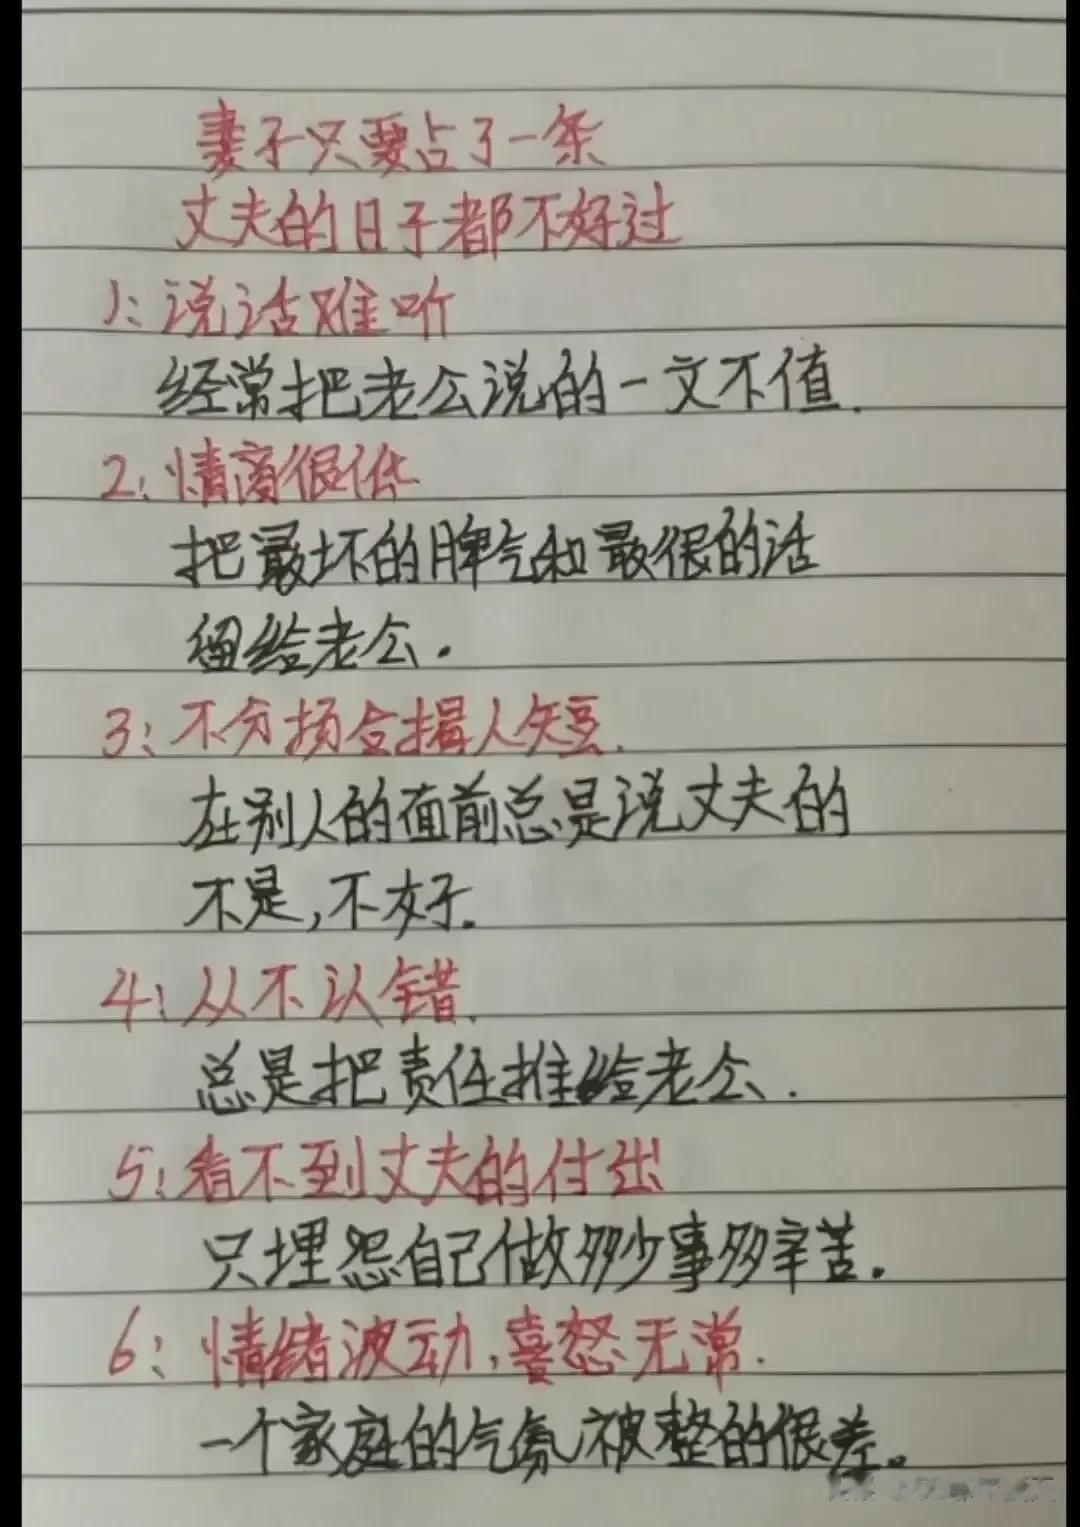 妻子只要占了一条
丈夫的日子都不好过
1:说话难听
经常把老公说的一文不值.
2:情商很低
把最坏的脾气和最很的话
留给老公.
3:不分场合揭人短.
在别人的面前总是说丈夫的
不是,不好.
4:从不认错.
总是把责任推给老公.
5:看不到丈夫的付出
只埋怨自己做多少事多辛苦.
6:情绪波动,喜怒无常.
一个家庭的气氛被整的很差。